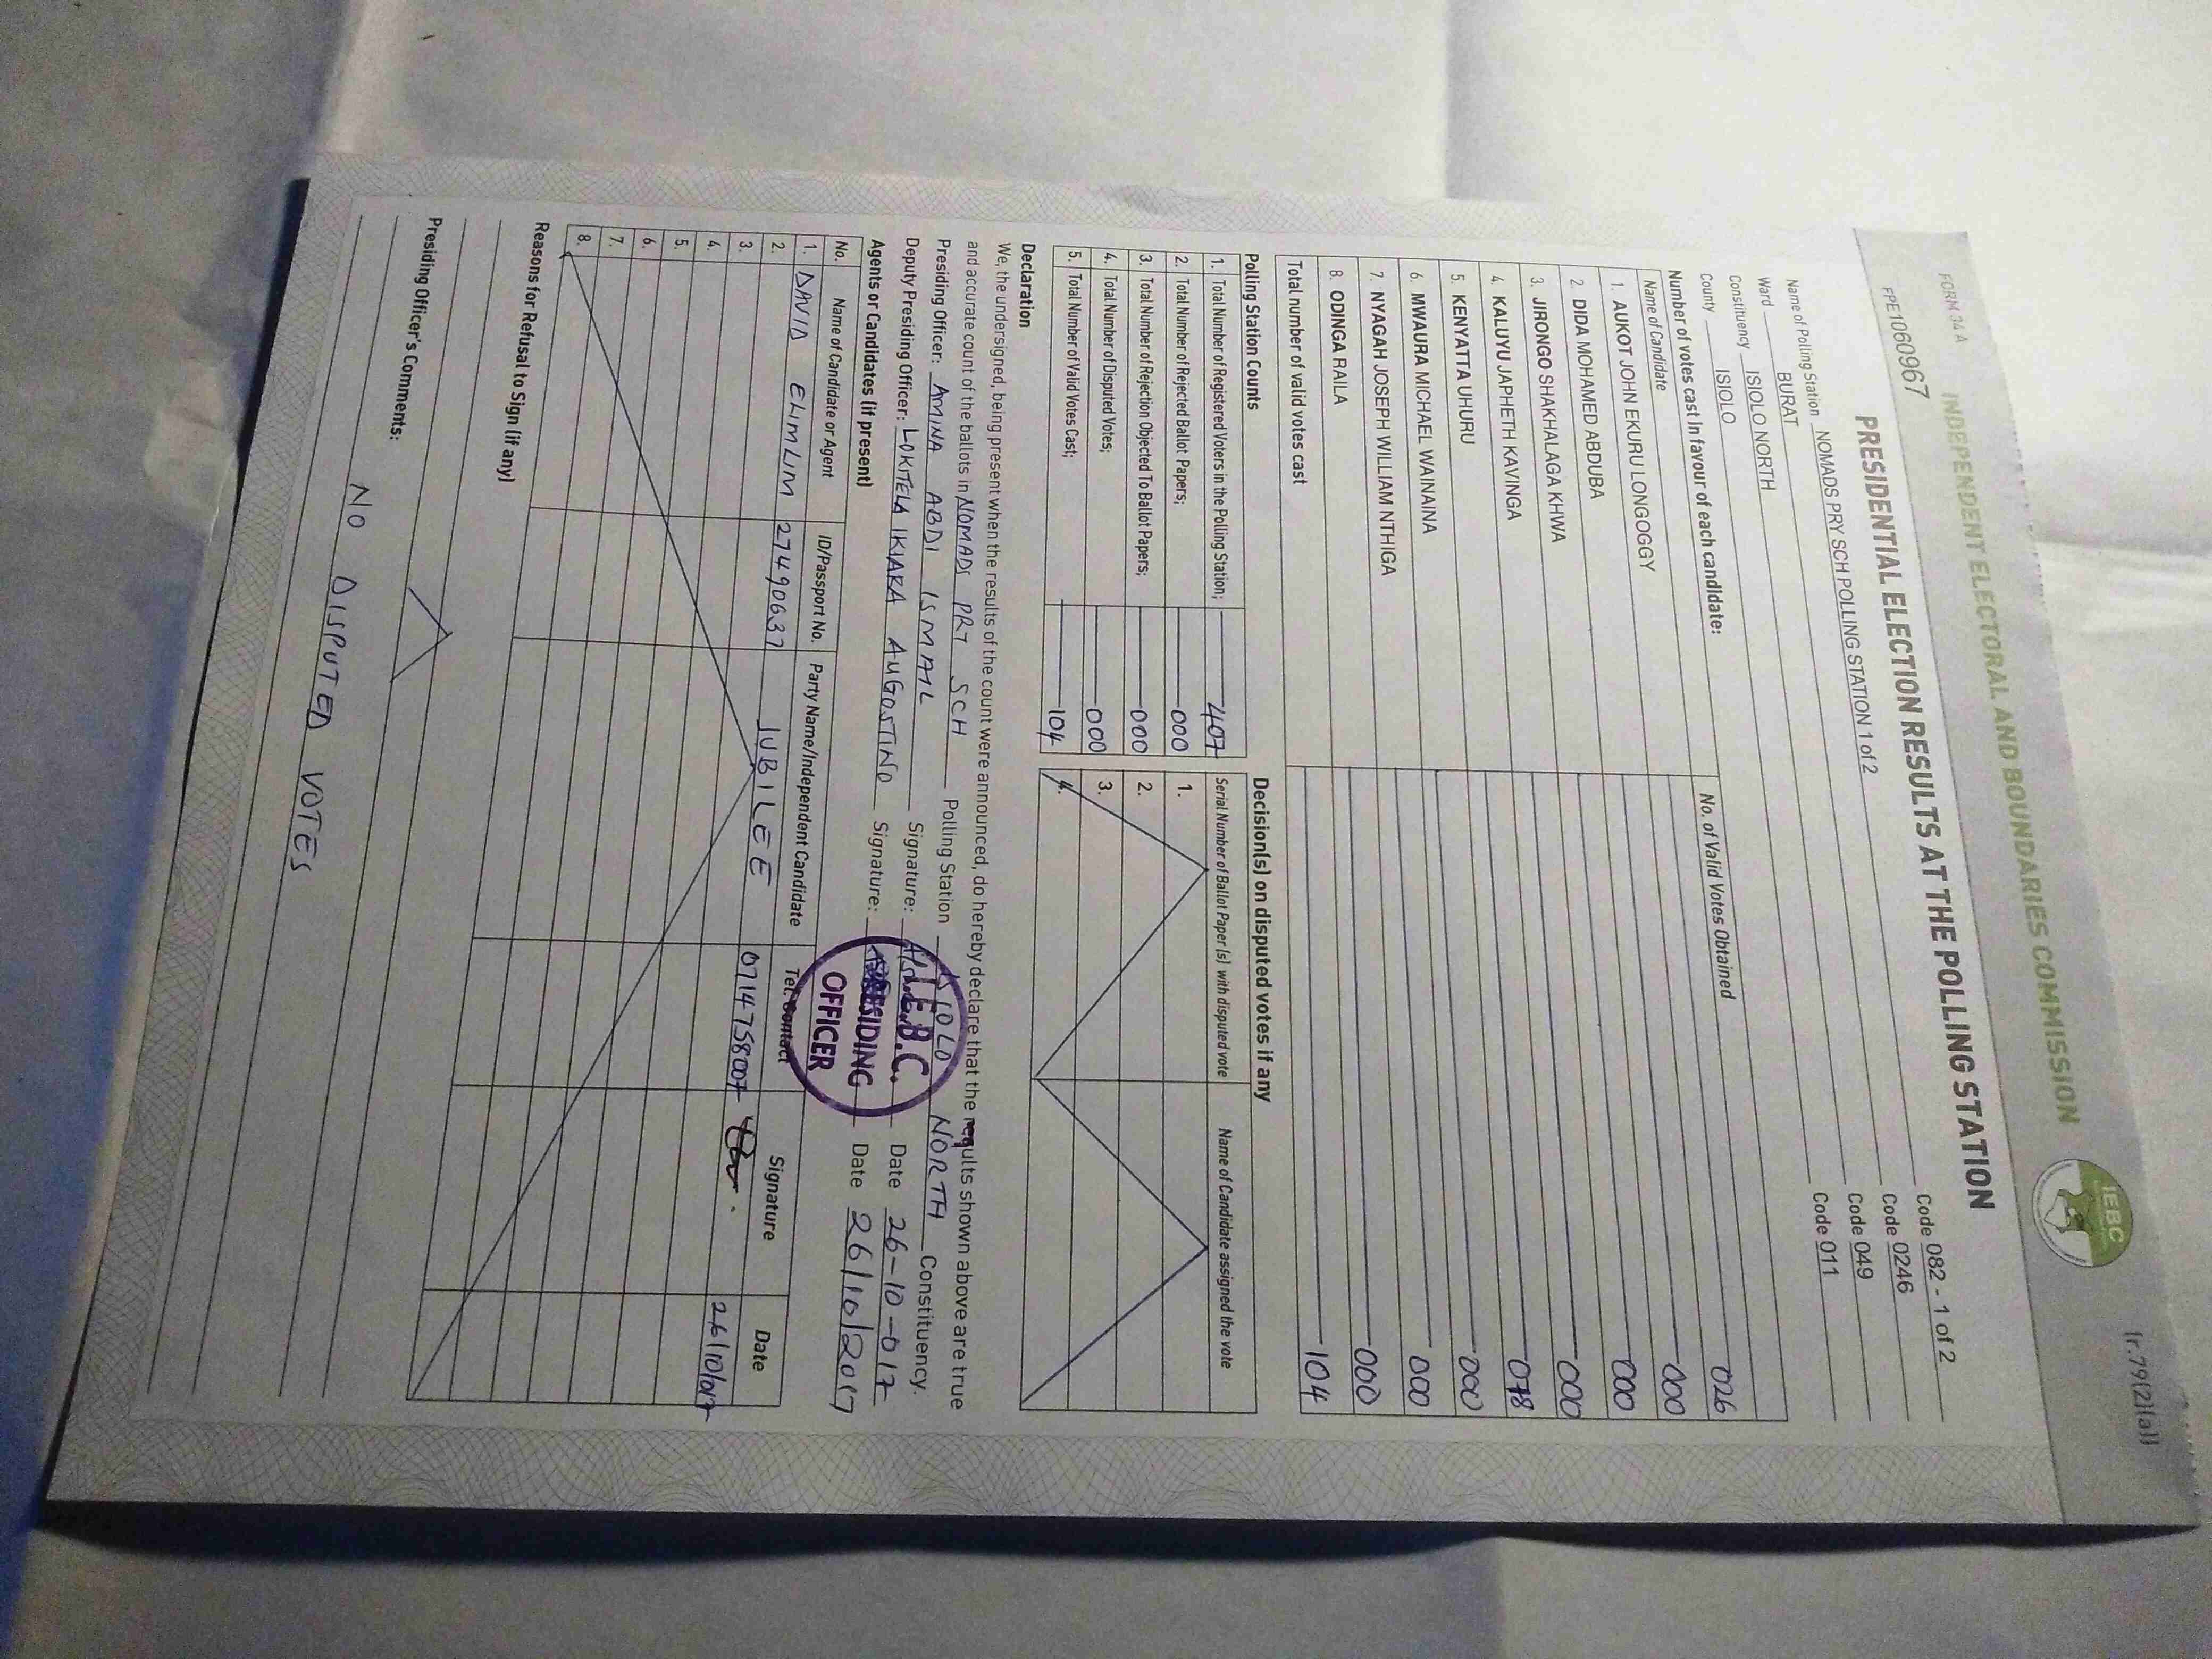 FORM 34 A
(r.79(2)(a))
INDEPENDENT ELECTORAL AND BOUNDARIES COMMISSION
IEBC
FPE1060967
PRESIDENTIAL ELECTION RESULTS AT THE POLLING STATION
Name of Polling Station NOMADS PRY SCH POLLING STATION 1 of 2 Code 082 - 1 of 2
Ward BURAT Code 0246
Constituency ISIOLO NORTH Code 049
County ISIOLO Code 011
Number of votes cast in favour of each candidate:
Name of Candidate No. of Valid Votes Obtained
1. AUKOT JOHN EKURU LONGOGGY 026
2. DIDA MOHAMED ABDUBA 000
3. JIRONGO SHAKHALAGA KHWA 000
4. KALUYU JAPHETH KAVINGA 000
5. KENYATTA UHURU 078
6. MWAURA MICHAEL WAINAINA 000
7. NYAGAH JOSEPH WILLIAM NTHIGA 000
8. ODINGA RAILA 000
Total number of valid votes cast 104
Polling Station Counts
1. Total Number of Registered Voters in the Polling Station; 407
2. Total Number of Rejected Ballot Papers; 000
3. Total Number of Rejection Objected To Ballot Papers; 000
4. Total Number of Disputed Votes; 000
5. Total Number of Valid Votes Cast; 104
Decision(s) on disputed votes if any
Serial Number of Ballot Paper (s) with disputed vote Name of Candidate assigned the vote
1.
2.
3.
4.
Declaration
We, the undersigned, being present when the results of the count were announced, do hereby declare that the results shown above are true
and accurate count of the ballots in NOMADS PRY SCH Polling Station ISIOLO NORTH Constituency.
Presiding Officer: AMINA ABDI ISMAIL Signature: Date 26-10-017
Deputy Presiding Officer: LOKITELA IKIARA AUGOSTINO Signature: Date 26/10/2017
I.E.B.C.
PRESIDING
OFFICER
Agents or Candidates (if present)
No. Name of Candidate or Agent ID/Passport No. Party Name/Independent Candidate Tel. Contact Signature Date
1. DAVID ELIM LIM 27490637 JUBILEE 0714758007 26/10/017
2.
3.
4.
5.
6.
7.
8.
Reasons for Refusal to Sign (if any)
Presiding Officer's Comments:
NO DISPUTED VOTES